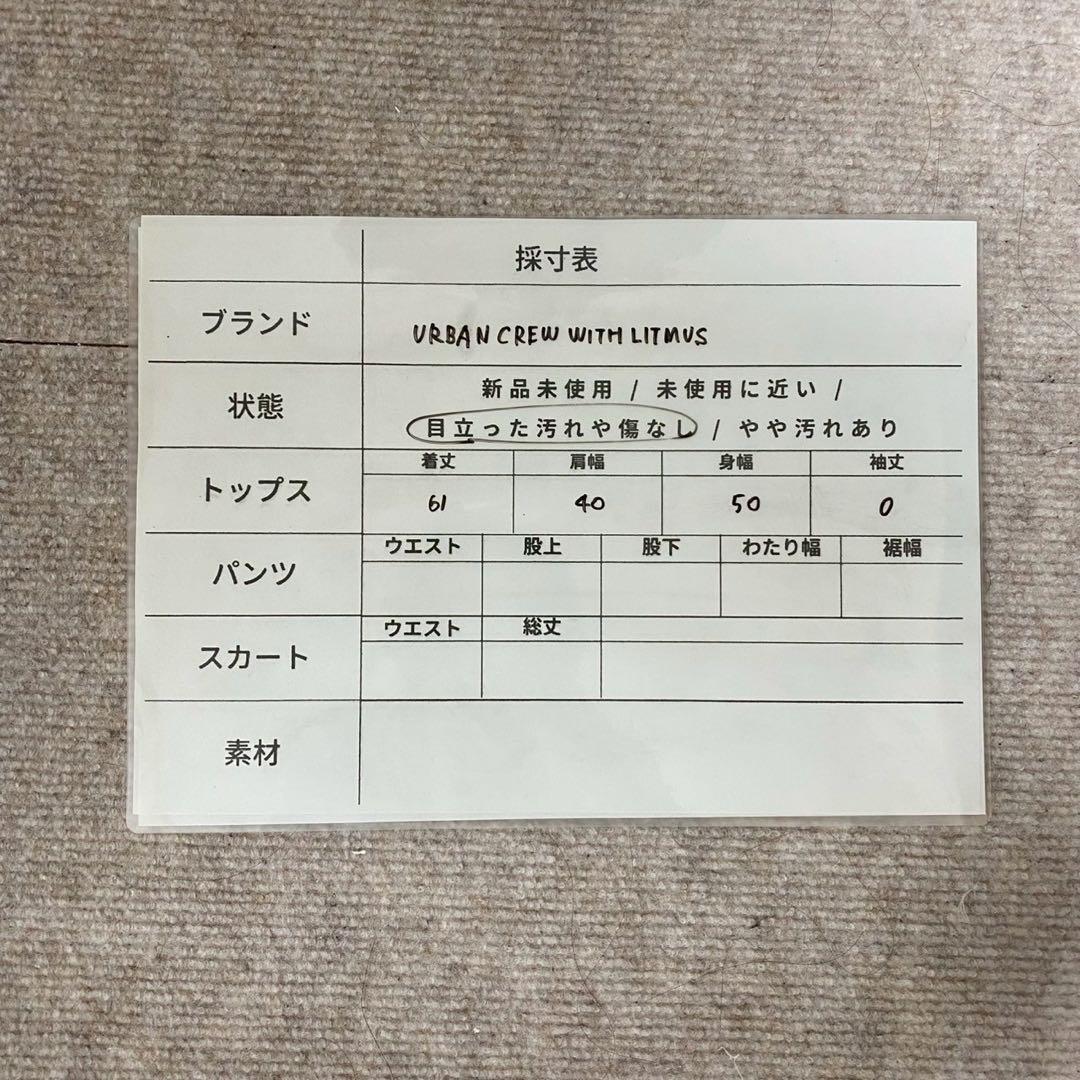 採寸表
ブランド URBAN CREW WITH LITMUS
状態 新品未使用 / 未使用に近い /
目立った汚れや傷なし / やや汚れあり
トップス 着丈 肩幅 身幅 袖丈
61 40 50 0
パンツ ウエスト 股上 股下 わたり幅 裾幅
スカート ウエスト 総丈
素材